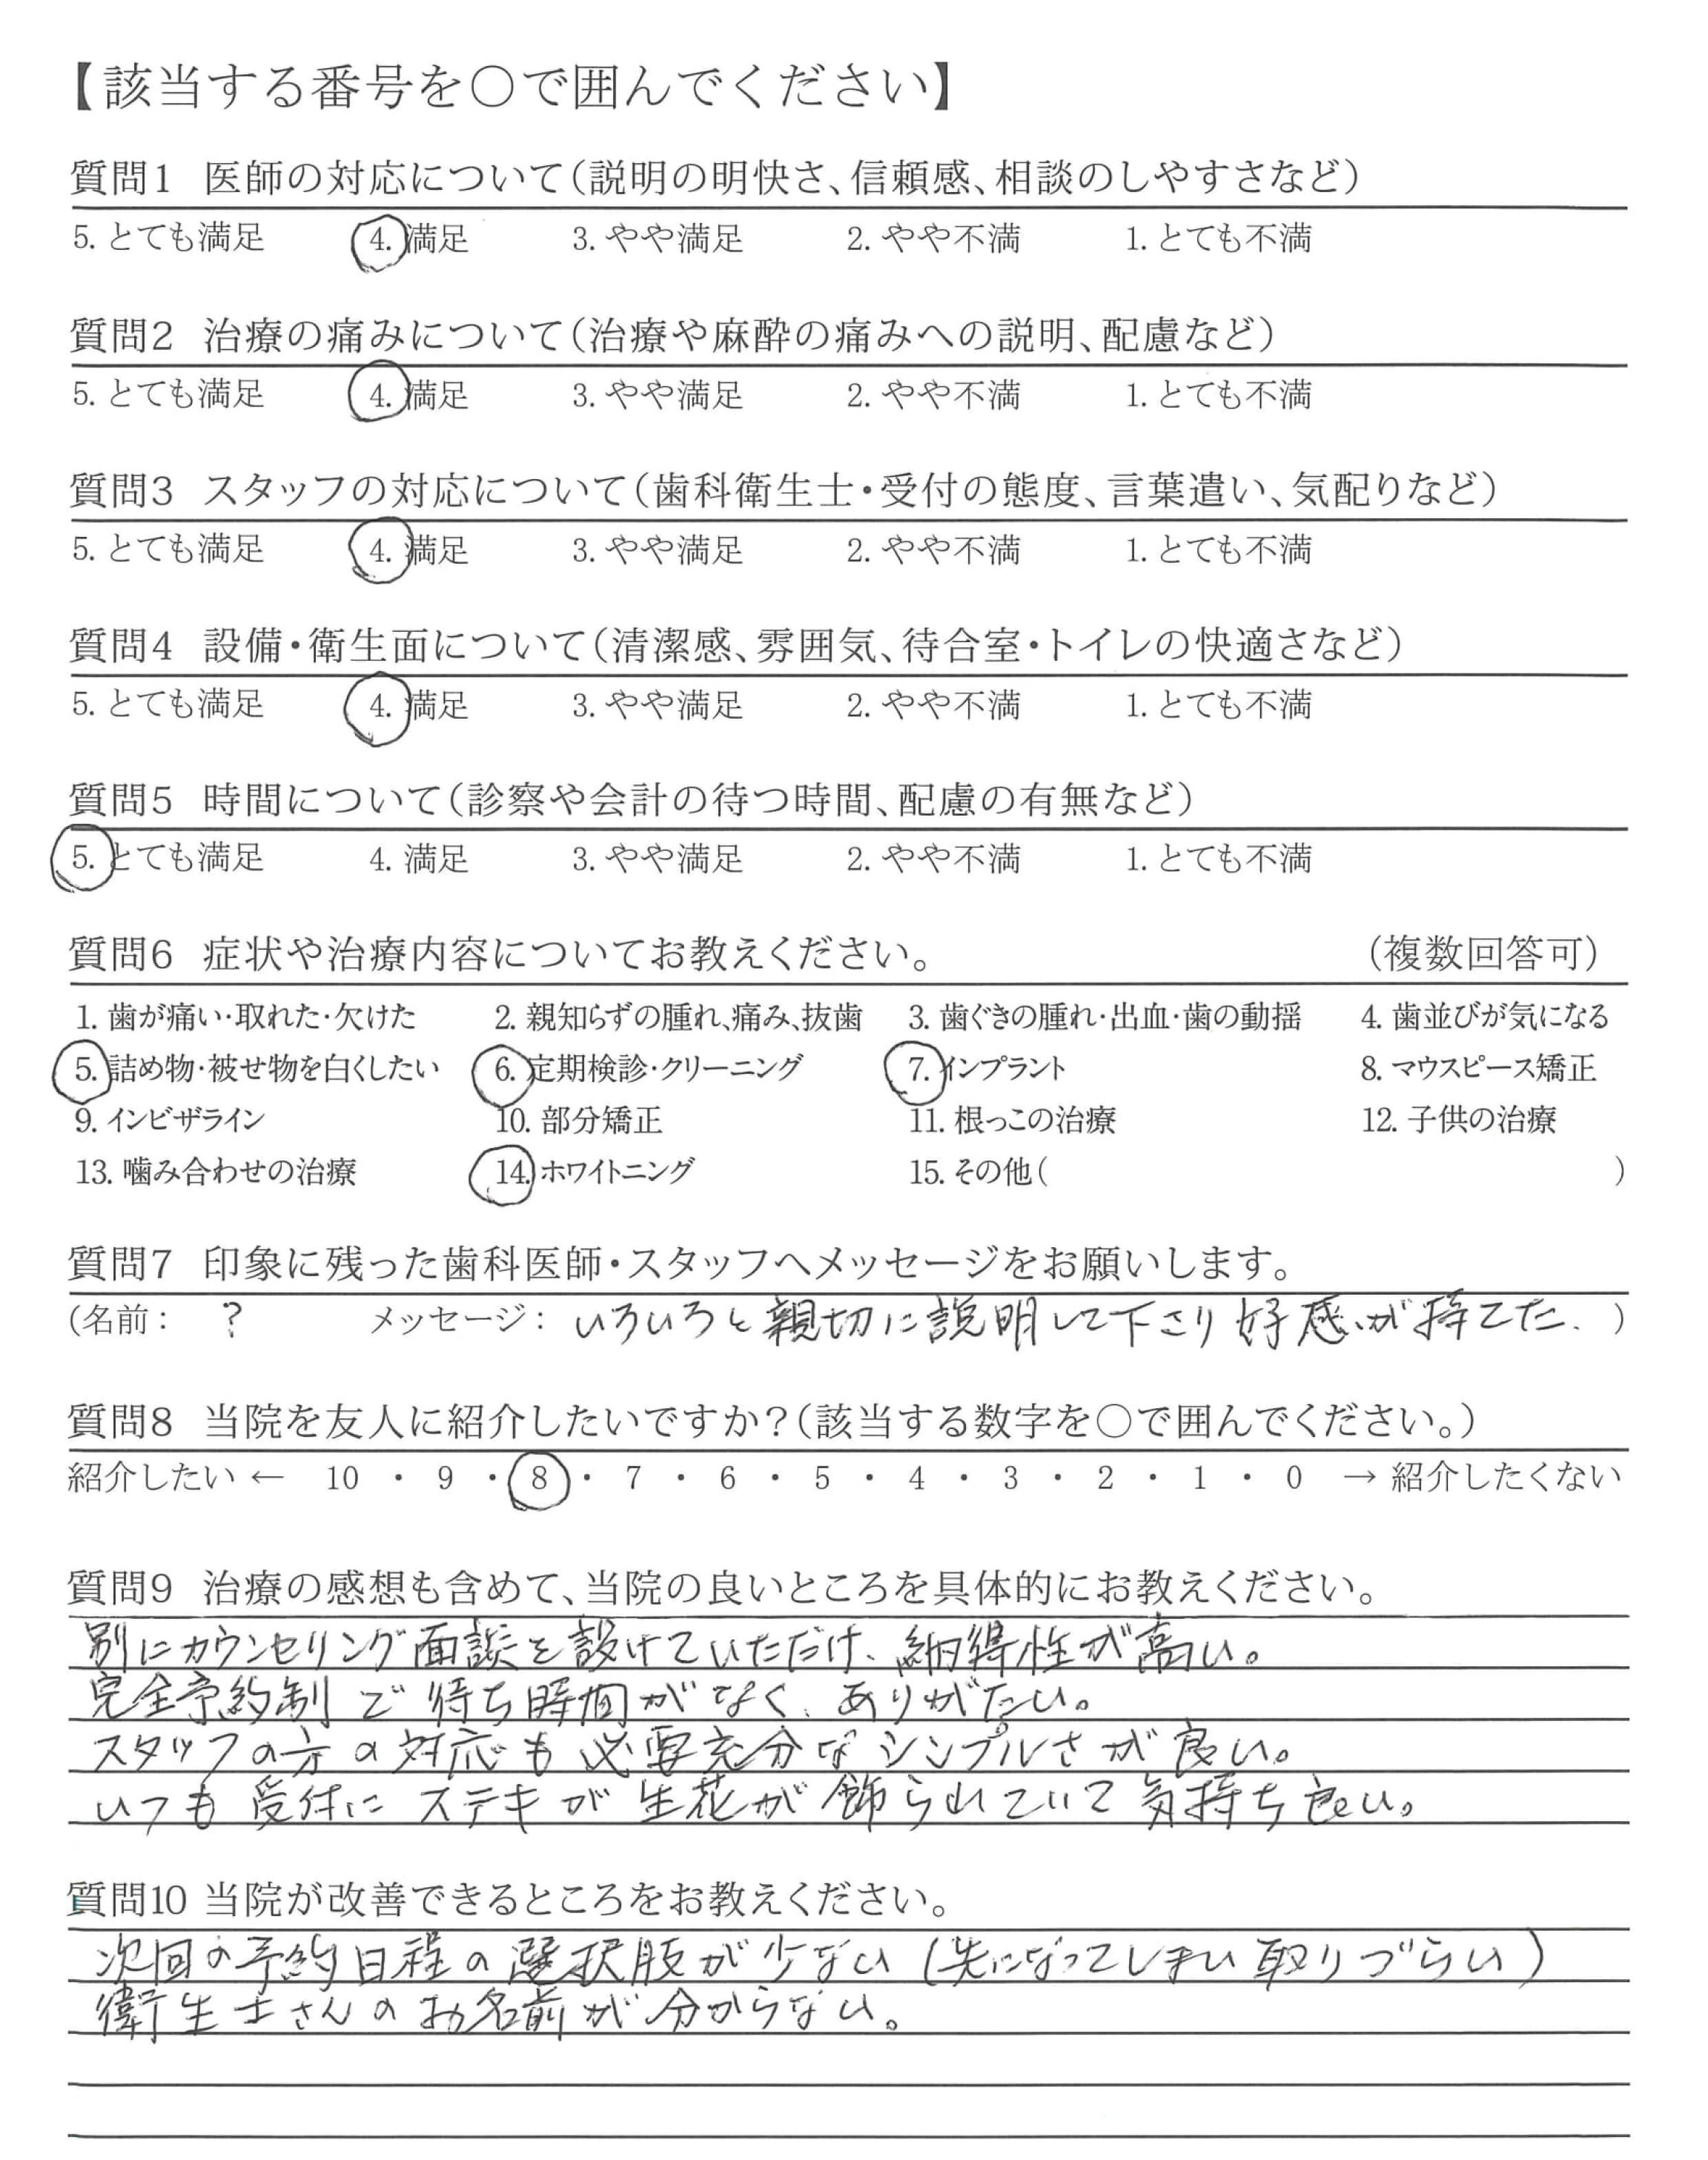 【該当する番号を○で囲んでください】
質問1 医師の対応について(説明の明快さ、信頼感、相談のしやすさなど)
5. とても満足 4. 満足 3. やや満足 2. やや不満 1. とても不満
質問2 治療の痛みについて(治療や麻酔の痛みへの説明、配慮など)
5. とても満足 4. 満足 3. やや満足 2. やや不満 1. とても不満
質問3 スタッフの対応について(歯科衛生士・受付の態度、言葉遣い、気配りなど)
5. とても満足 4. 満足 3. やや満足 2. やや不満 1. とても不満
質問4 設備・衛生面について(清潔感、雰囲気、待合室・トイレの快適さなど)
5. とても満足 4. 満足 3. やや満足 2. やや不満 1. とても不満
質問5 時間について(診察や会計の待つ時間、配慮の有無など)
5. とても満足 4. 満足 3. やや満足 2. やや不満 1. とても不満
質問6 症状や治療内容についてお教えください。 (複数回答可)
1. 歯が痛い・取れた・欠けた 2. 親知らずの腫れ、痛み、抜歯 3. 歯ぐきの腫れ・出血・歯の動揺 4. 歯並びが気になる
5. 詰め物・被せ物を白くしたい 6. 定期検診・クリーニング 7. インプラント 8. マウスピース矯正
9. インビザライン 10. 部分矯正 11. 根っこの治療 12. 子供の治療
13. 噛み合わせの治療 14. ホワイトニング 15. その他( )
質問7 印象に残った歯科医師・スタッフへメッセージをお願いします。
(名前: ? メッセージ: いろいろと親切に説明して下さり好感が持てた. )
質問8 当院を友人に紹介したいですか?(該当する数字を○で囲んでください。)
紹介したい ← 10 ・ 9 ・ 8 ・ 7 ・ 6 ・ 5 ・ 4 ・ 3 ・ 2 ・ 1 ・ 0 → 紹介したくない
質問9 治療の感想も含めて、当院の良いところを具体的にお教えください。
別にカウンセリング面談を設けていただけ、納得性が高い。
完全予約制で待ち時間がなく、ありがたい。
スタッフの方の対応も必要充分なシンプルさが良い。
いつも受付にステキが生花が飾られていて気持ち良い。
質問10 当院が改善できるところをお教えください。
次回の予約日程の選択肢が少ない(先になってしまい取りづらい)
衛生士さんのお名前が分からない。